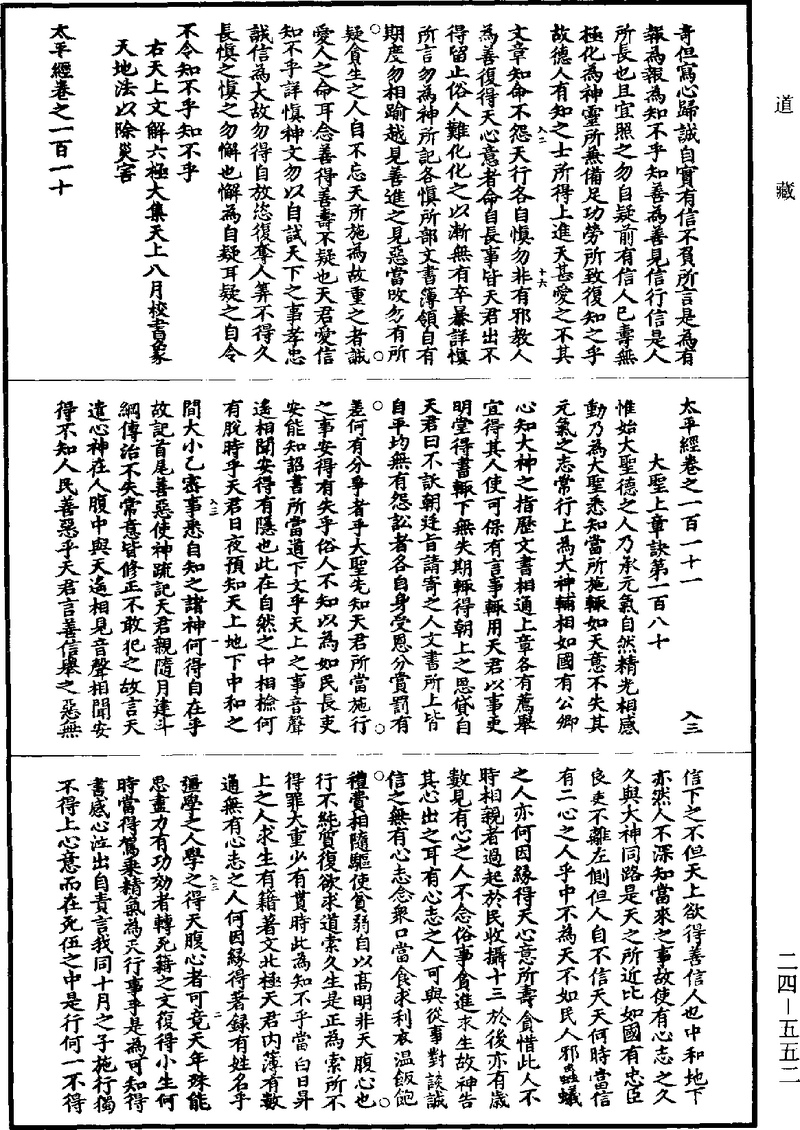 道藏
奇但寫心歸誠自實有信不負所言是為有
報為報為知不乎知善為善見信行信是人
所長也且宜照之勿自疑前有信人已壽無
極化為神靈所無備足功勞所致復知之乎
故德人有知之士所得上進天甚愛之不其
文章知命不怨天行各自慎勿非有邪教人
為善復得天心意者命自長事皆天君出不
得留止俗人難化化之以漸無有卒暴詳慎
所言勿為神所記各慎所部文書簿領自有
期度勿相踰越見善進之見惡當改勿有所
疑貪生之人自不忘天所施為故重之者誠
愛人之命耳念善得善壽不疑也天君愛信
知不乎詳慎神文勿以自試天下之事孝忠
誠信為大故勿得自放恣復奪人筭不得久
長慎之慎之勿懈也懈為自疑耳疑之自令
不令知不乎知不乎
右天上文解六極大集天上八月校書象
天地法以除災害
太平經卷之一百一十
入二
十六
太平經卷之一百一十一
入三
大聖上章訣第一百八十
惟始大聖德之人乃承元氣自然精光相感
動乃為大聖悉知當所施輒如天意不失其
元氣之志常行上為大神輔相如國有公卿
心知大神之指歷文書相通上章各有薦舉
宜得其人使可保有言事輒用天君以事更
明堂得書輒下無失期輒得朝上之恩貸自
天君曰不訣朝廷旨請寄之人文書所上皆
自平均無有怨訟者各自身受恩分賞罰有
差何有分爭者乎大聖先知天君所當施行
之事安得有失乎俗人不知以為如民長吏
安能知詔書所當道下文乎天上之事音聲
遙相聞安得有隱也此在自然之中相檢何
有脫時乎天君日夜預知天上地下中和之
間大小乙密事悉自知之諸神何得自在乎
故記首尾善惡使神疏記天君親隨月建斗
綱傳治不失常意皆修正不敢犯之故言天
遣心神在人腹中與天遙相見音聲相聞安
得不知人民善惡乎天君言善信舉之惡無
入三
一
信下之不但天上欲得善信人也中和地下
亦然人不深知當來之事故使有心志之人
久與大神同路是天之所近比如國有忠臣
良吏不離左側但人自不信天天何時當信
有二心之人乎中不為天不如民人邪蟲蟻
之人亦何因緣得天心意所壽貪惜此人不
時相親者過起於民收攝十三於後亦有歲
數見有心之人不念俗事貪進求生故神告
其心出之耳有心志之人可與從事對談誠
信之無有心志念衆口當食求利衣溫飯飽
禮費相隨驅使貧弱自以高明非天腹心也
行不純質復欲求道索久生是正為索所不
得罪大重少有貰時此為知不乎當白日昇
上之人求生有籍著文北極天君內簿有數
通無有心志之人何因緣得著錄有姓名乎
彊學之人學之得天腹心者可竟天年殊能
思盡力有功効者轉死籍之文復得小生何
時當得駕乘精氣為天行事乎是為可知得
書感心泣出自責言我同十月之子施行獨
不得上心意而在死伍之中是行何一不得
入三
二
二四—五五二